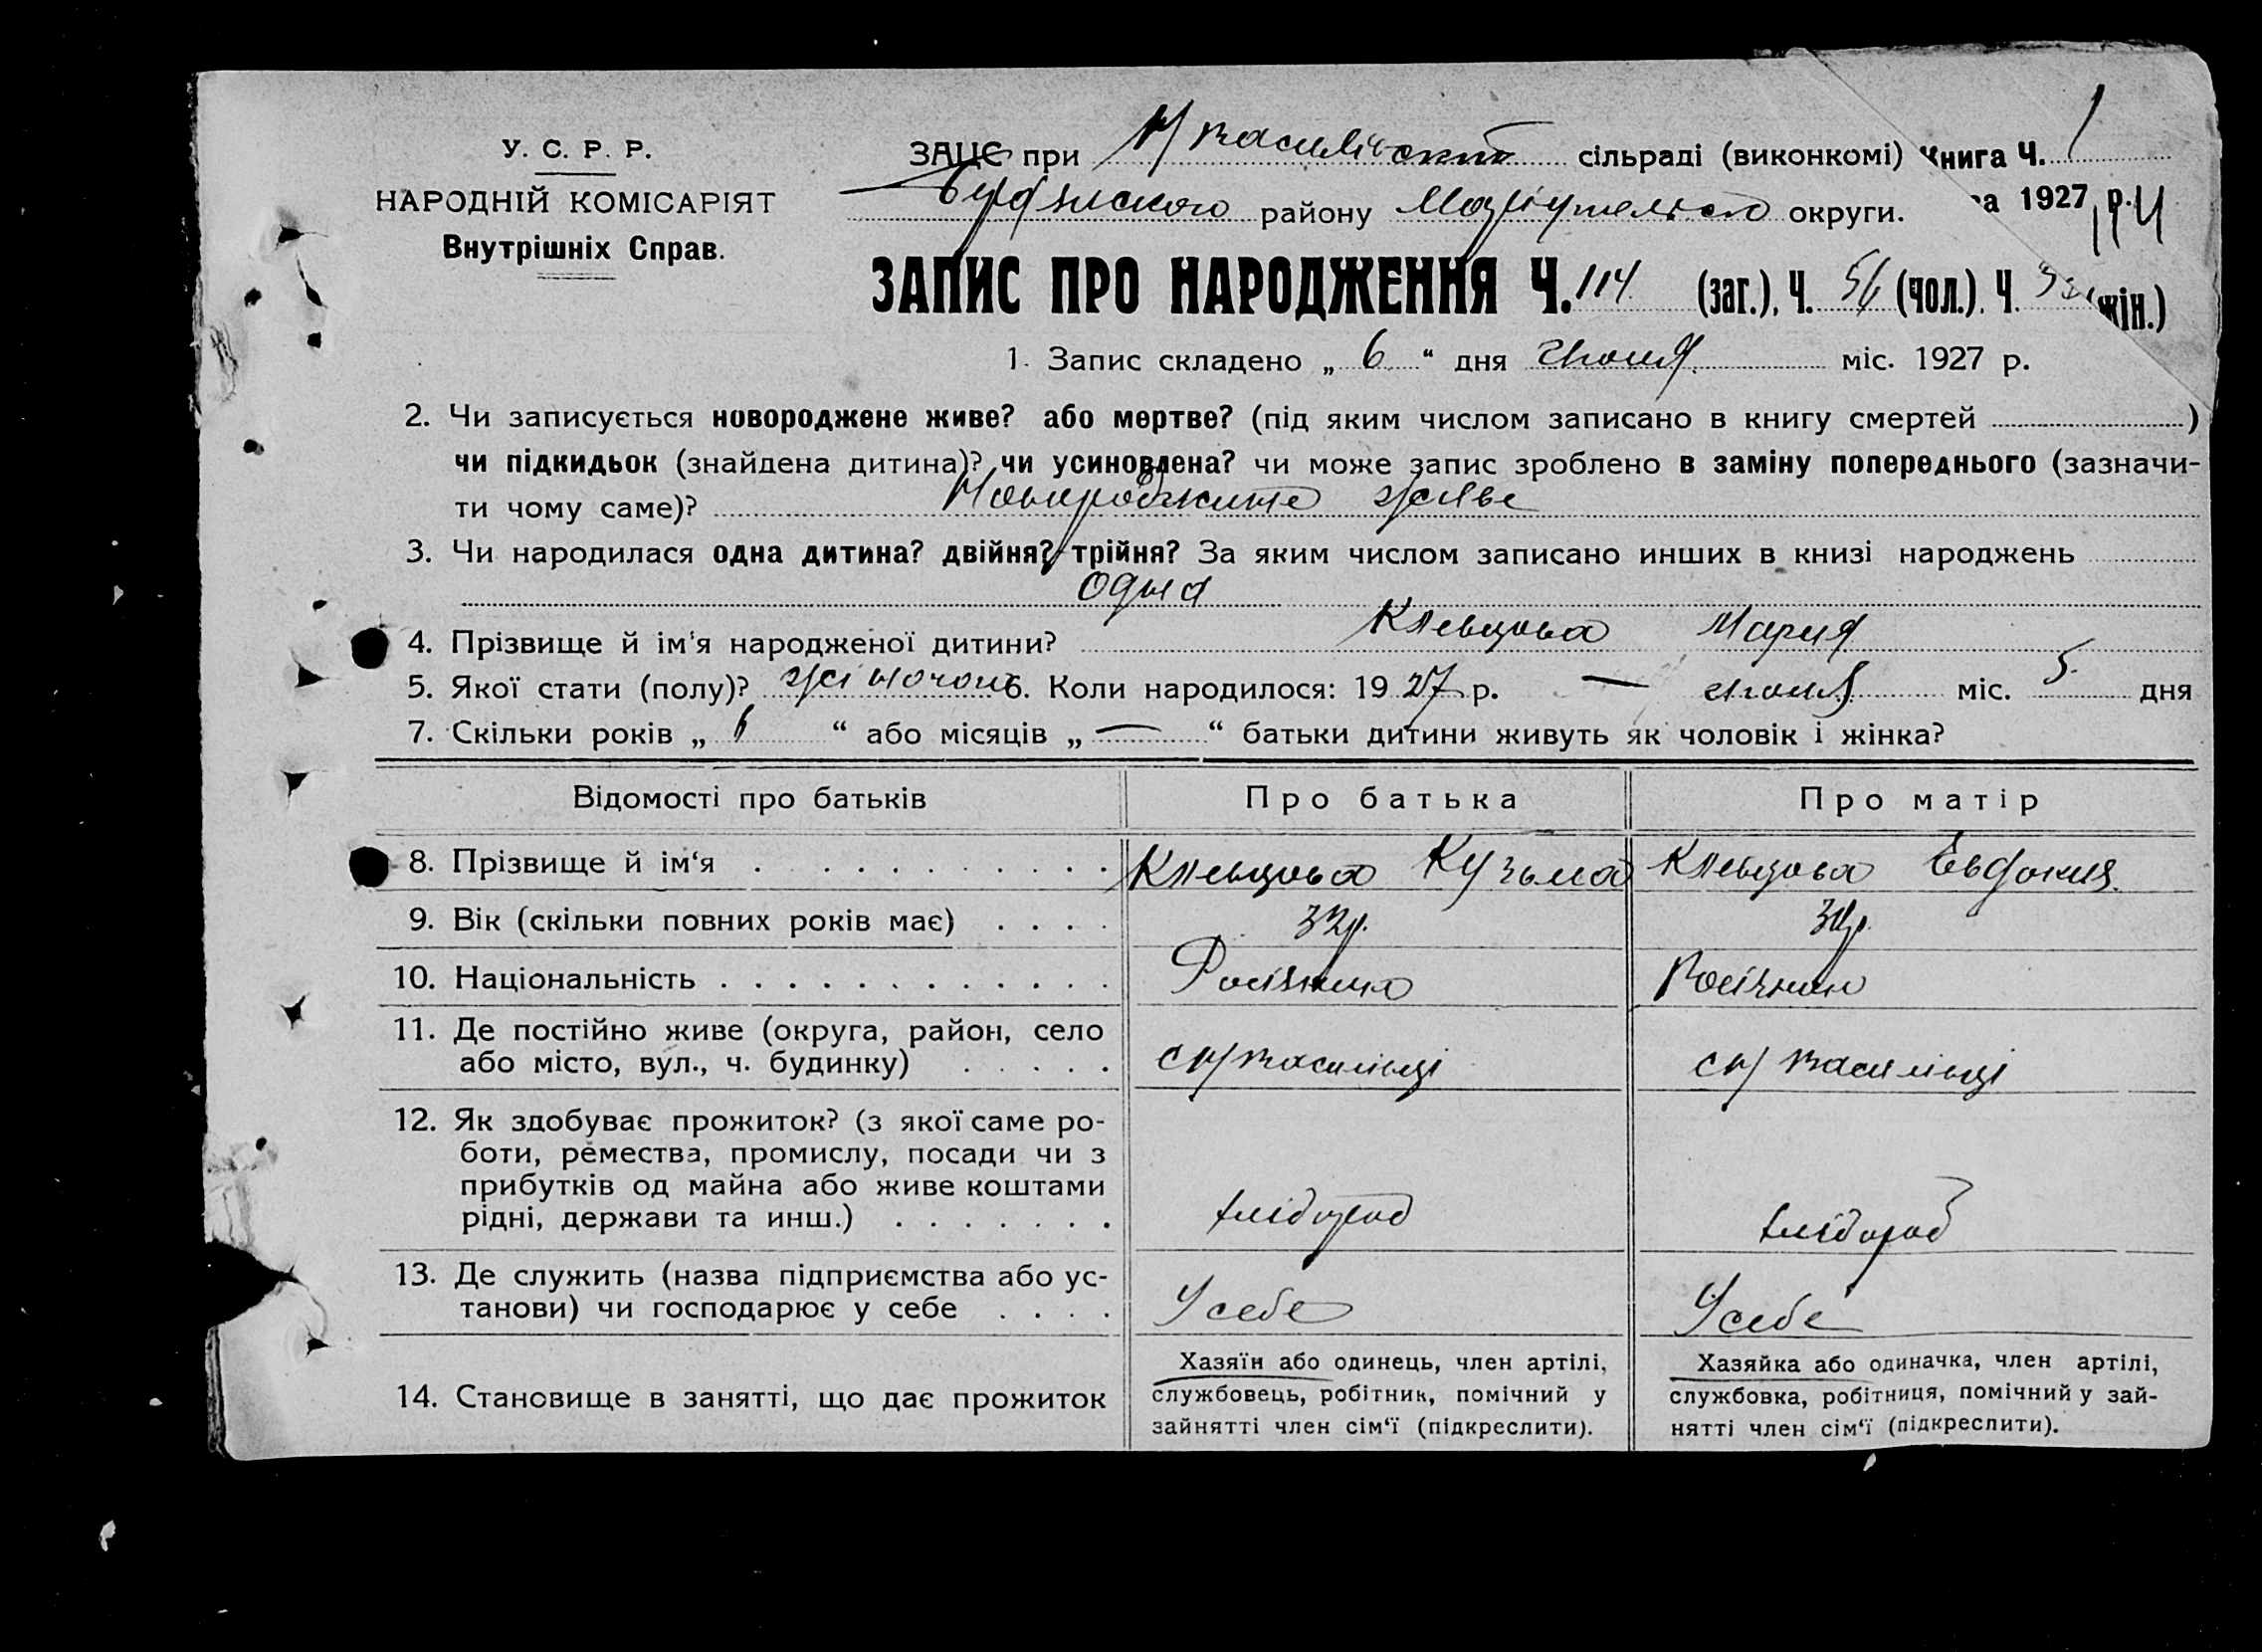 У. С. Р. Р.
НАРОДНІЙ КОМІСАРІЯТ
Внутрішніх Справ.
ЗАЦС при Н/Василівский сільраді (виконкомі) Книга Ч. 1
Бердянского району Маріупельского округи. на 1927 р. 114
ЗАПИС ПРО НАРОДЖЕННЯ Ч. 114 (заг.), Ч. 56 (чол.). Ч. (жін.)
1. Запис складено „ 6 “ дня міс. 1927 р.
2. Чи записується новороджене живе? або мертве? (під яким числом записано в книгу смертей )
чи підкидьок (знайдена дитина)? чи усиновлена? чи може запис зроблено в заміну попереднього (зазначи-
ти чому саме)? живе
3. Чи народилася одна дитина? двійня? трійня? За яким числом записано инших в книзі народжень
Одна
4. Прізвище й ім'я народженої дитини? Клевцова Мария
5. Якої статі (полу)? жіночоі 6. Коли народилося: 1927 р. — міс. 5 дня
7. Скільки років „ 6 “ або місяців „ — “ батьки дитини живуть як чоловік і жінка?
Відомості про батьків Про батька Про матір
8. Прізвище й ім‘я Клевцова Кузьма Клевцова Евдокия
9. Вік (скільки повних років має) 32р.
10. Національність Росіянин Росіянин
11. Де постійно живе (округа, район, село
або місто, вул., ч. будинку) с Н/Василівці с Н/Василівці
12. Як здобуває прожиток? (з якої саме ро-
боти, ремества, промислу, посади чи з
прибутків од майна або живе коштами
рідні, держави та инш.) хлібороб хлібороб
13. Де служить (назва підприємства або ус-
танови) чи господарює у себе У себе У себе
14. Становище в занятті, що дає прожиток
Хазяїн або одинець, член артілі,
службовець, робітник, помічний у
зайнятті член сім‘ї (підкреслити).
Хазяйка або одиначка, член артілі,
службовка, робітниця, помічний у зай-
нятті член сім‘ї (підкреслити).